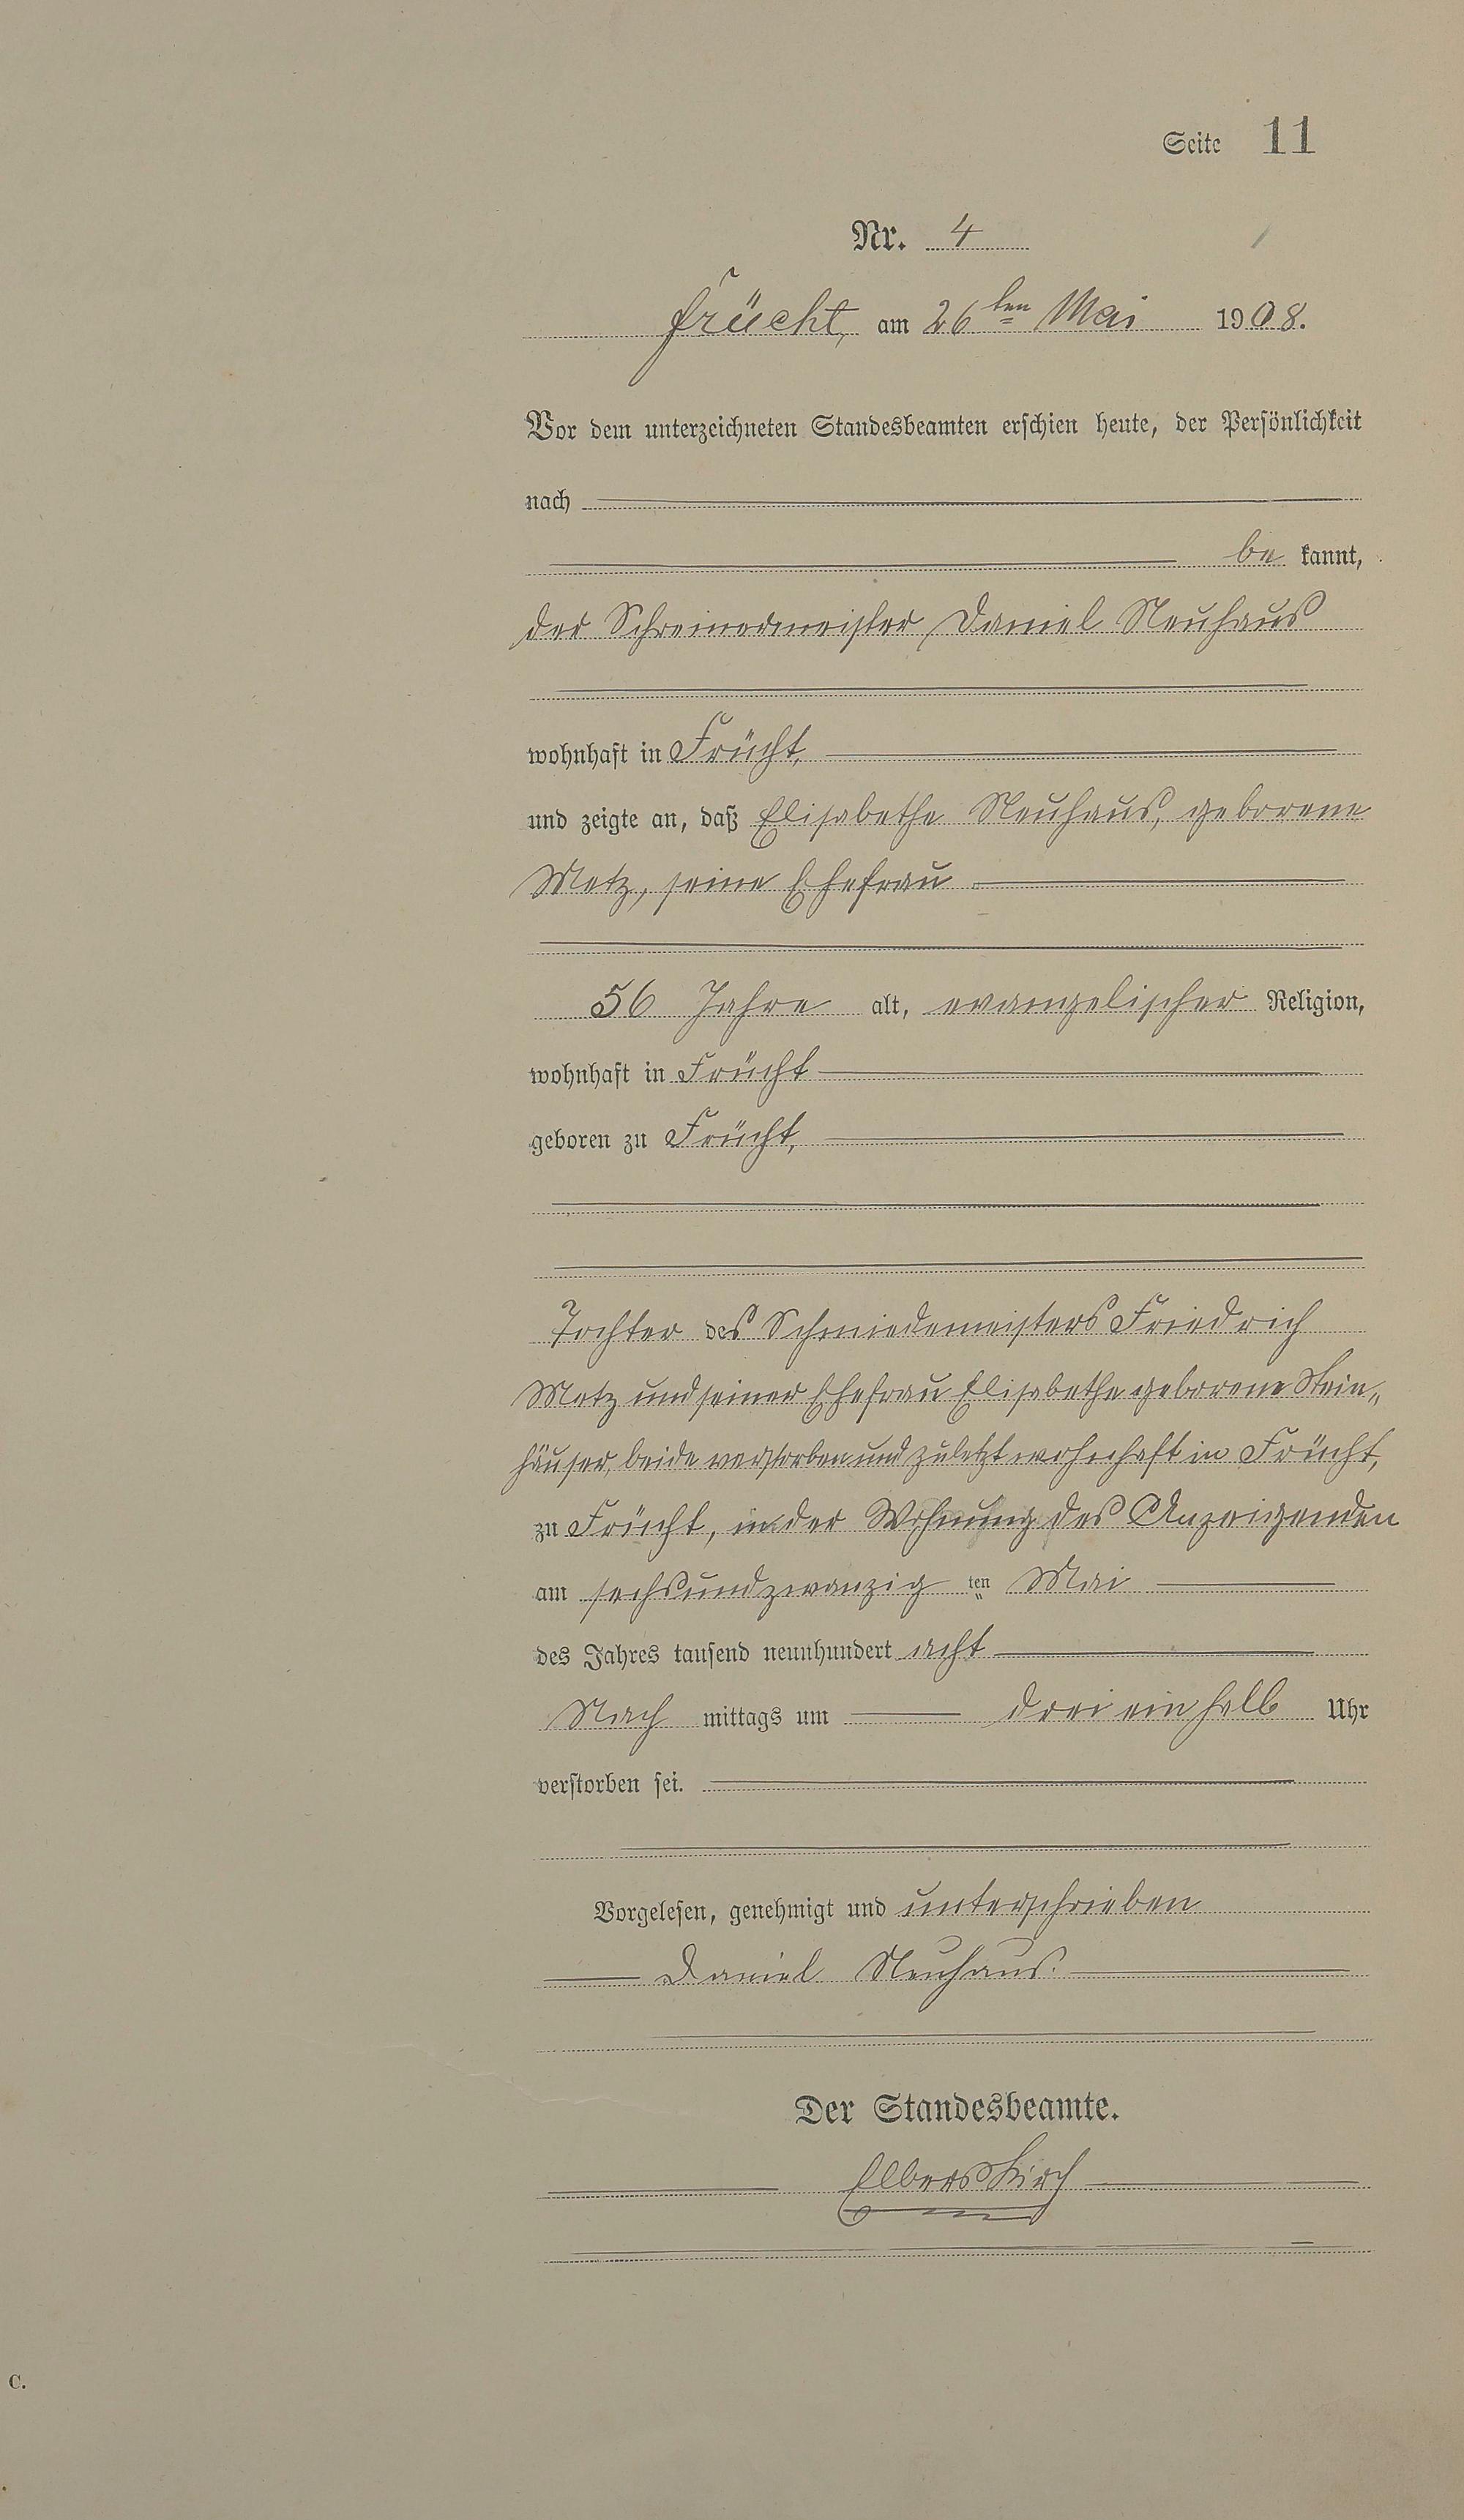 Seite 11
Nr. 4
Frücht, am 26ten Mai 1908.
Vor dem unterzeichneten Standesbeamten erschien heute, der Persönlichkeit
nach
be kannt,
der Schreinermeister Daniel Neuhaus
wohnhaft in Frücht,
und zeigte an, daß Elisabethe Neuhaus, geborene
Metz, seine Ehefrau
56 Jahre alt, evangelischer Religion,
wohnhaft in Frücht
geboren zu Frücht,
Tochter des Schmiedemeisters Friedrich
Metz und seiner Ehefrau Elisabethe geborene Stein„
häuser, beide verstorben und zuletzt wohnhaft in Frücht,
zu Frücht, in der Wohnung des Anzeigenden
am sechsundzwanzig ten Mai
des Jahres tausend neunhundert acht
Nach mittags um drei ein halb Uhr
verstorben sei.
Vorgelesen, genehmigt und unterschrieben
Daniel Neuhaus.
Der Standesbeamte.
Elberskirch
C.